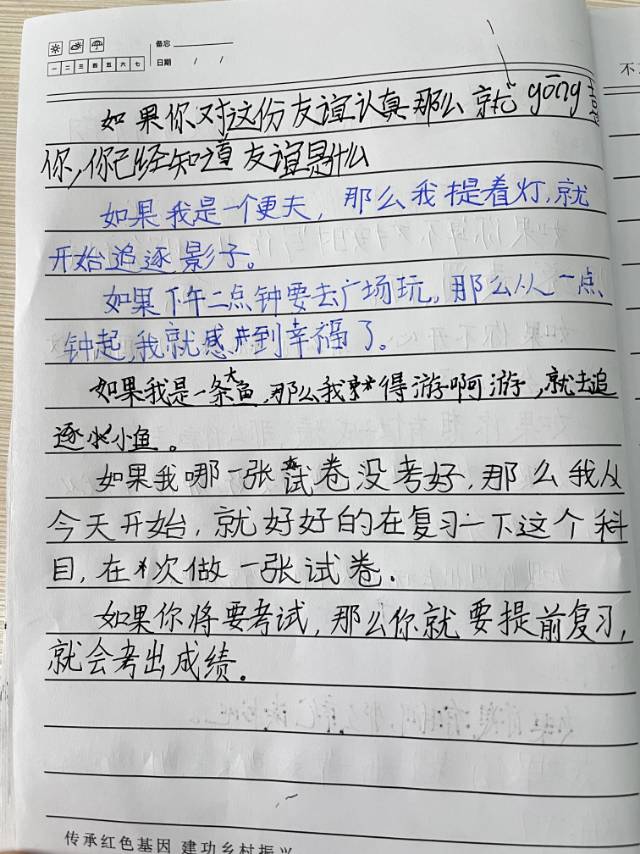 备忘
一 二 三 四 五 六 七 日期 / /
不
如果你对这份友谊认真那么就gōng喜
你,你已经知道友谊是什么
如果我是一个更夫,那么我提着灯,就
开始追逐影子。
如果下午二点钟要去广场玩,那么从一点
钟起,我就感到幸福了。
如果我是一条大鱼,那么我得游啊游,就去追
逐小鱼。
如果我哪一张试卷没考好,那么我从
今天开始,就好好的在复习一下这个科
目,在次做一张试卷.
如果你将要考试,那么你就要提前复习,
就会考出成绩。
传承红色基因 建功乡村振兴